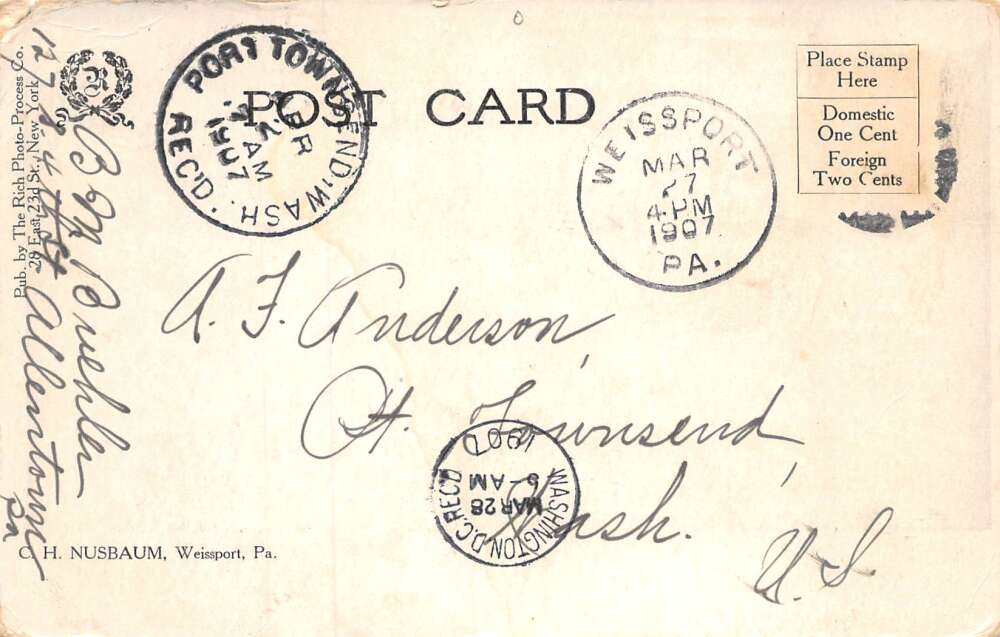 POST CARD
Place Stamp
Here
Domestic
One Cent
Foreign
Two Cents
PORT TOWNSEND, WASH.
APR
AM
1907
REC'D.
WEISSPORT
MAR
27
4-PM
1907
PA.
A. F. Anderson,
Pt. Townsend,
Wash.
U. S.
WASHINGTON, D.C. REC'D
MAR 28
5-AM
1907
Pub. by The Rich Photo-Process Co.
26 East 23d St., New York
R
Buehler
Allentown
Pa
C. H. NUSBAUM, Weissport, Pa.